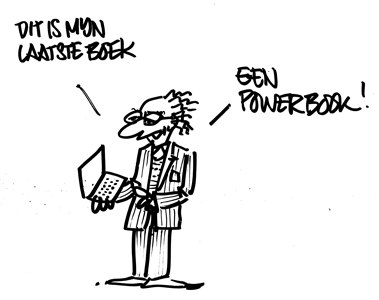 DIT IS MIJN
LAATSTE BOEK
EEN
POWERBOOK!